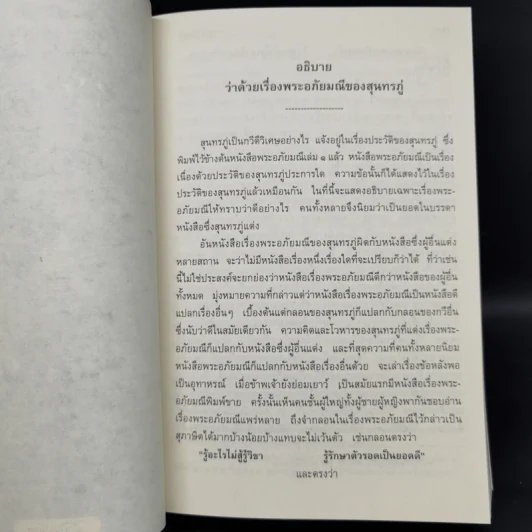 อธิบาย
ว่าด้วยเรื่องพระอภัยมณีของสุนทรภู่
สุนทรภู่เป็นกวีดีวิเศษอย่างไร แจ้งอยู่ในเรื่องประวัติของสุนทรภู่ ซึ่ง
พิมพ์ไว้ข้างต้นหนังสือพระอภัยมณีเล่ม ๑ แล้ว หนังสือพระอภัยมณีเป็นเรื่อง
เนื่องด้วยประวัติของสุนทรภู่ประการใด ความข้อนั้นก็ได้แสดงไว้ในเรื่อง
ประวัติของสุนทรภู่แล้วเหมือนกัน ในที่นี้จะแสดงอธิบายเฉพาะเรื่องพระ-
อภัยมณีให้ทราบว่าดีอย่างไร คนทั้งหลายจึงนิยมว่าเป็นยอดในบรรดา
หนังสือซึ่งสุนทรภู่แต่ง
อันหนังสือเรื่องพระอภัยมณีของสุนทรภู่ผิดกับหนังสือซึ่งผู้อื่นแต่ง
หลายสถาน จะว่าไม่มีหนังสือเรื่องหนึ่งเรื่องใดที่จะเปรียบก็ว่าได้ ที่ว่าเช่น
นี้ไม่ใช่ประสงค์จะยกย่องว่าหนังสือเรื่องพระอภัยมณีดีกว่าหนังสือของผู้อื่น
ทั้งหมด มุ่งหมายความที่กล่าวแต่ว่าหนังสือเรื่องพระอภัยมณีเป็นหนังสือดี
แปลกเรื่องอื่นๆ เบื้องต้นแต่กลอนของสุนทรภู่ก็แปลกกับกลอนของกวีอื่น
ซึ่งนับว่าดีในสมัยเดียวกัน ความคิดและโวหารของสุนทรภู่ที่แต่งเรื่องพระ-
อภัยมณีก็แปลกกับหนังสือซึ่งผู้อื่นแต่ง และที่สุดความที่คนทั้งหลายนิยม
หนังสือเรื่องพระอภัยมณีก็แปลกกับหนังสือเรื่องอื่นด้วย จะเล่าเรื่องข้อหลังพอ
เป็นอุทาหรณ์ เมื่อข้าพเจ้ายังย่อมเยาว์ เป็นสมัยแรกมีหนังสือเรื่องพระ-
อภัยมณีพิมพ์ขาย ครั้งนั้นเห็นคนชั้นผู้ใหญ่ทั้งผู้ชายผู้หญิงพากันชอบอ่าน
เรื่องพระอภัยมณีแพร่หลาย ถึงจำกลอนในเรื่องพระอภัยมณีไว้กล่าวเป็น
สุภาษิตได้มากบ้างน้อยบ้างแทบจะไม่เว้นตัว เช่นกลอนตรงว่า
"รู้อะไรไม่สู้รู้วิชา รู้รักษาตัวรอดเป็นยอดดี"
และตรงว่า